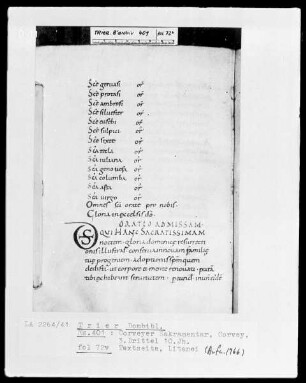 TRIER, B'DOMBIBL 401 fol 72v
Sce geruasi or
Sce protasi or
Sce ambrosi or
Sce siluester or
Sce eusebi or
Sce sulpici or
Sce syxte or
Sca tecla or
Sca iuliana or
Sca genouefa or
Sca columba or
Sca afra or
Sca uirgo or
Omnes sci orate pro nobis
Gloria in excelsis do
ORATIO AD MISSAM
DS QUI HANC SACRATISSIMAM
noctem gloria dominicę resurrecti
onis illustras conserua in noua familię
tuę progenie adoptionis spm quem
dedisti ut corpore et mente renouati purā
tibi exhibeant seruitutem
LA 2264/61 Trier Dombibl.
Hs.401: Corveyer Sakramentar, Corvey.
3.Drittel 10.Jh.
fol 72v Textseite, Litanei (Aufn. 1966)